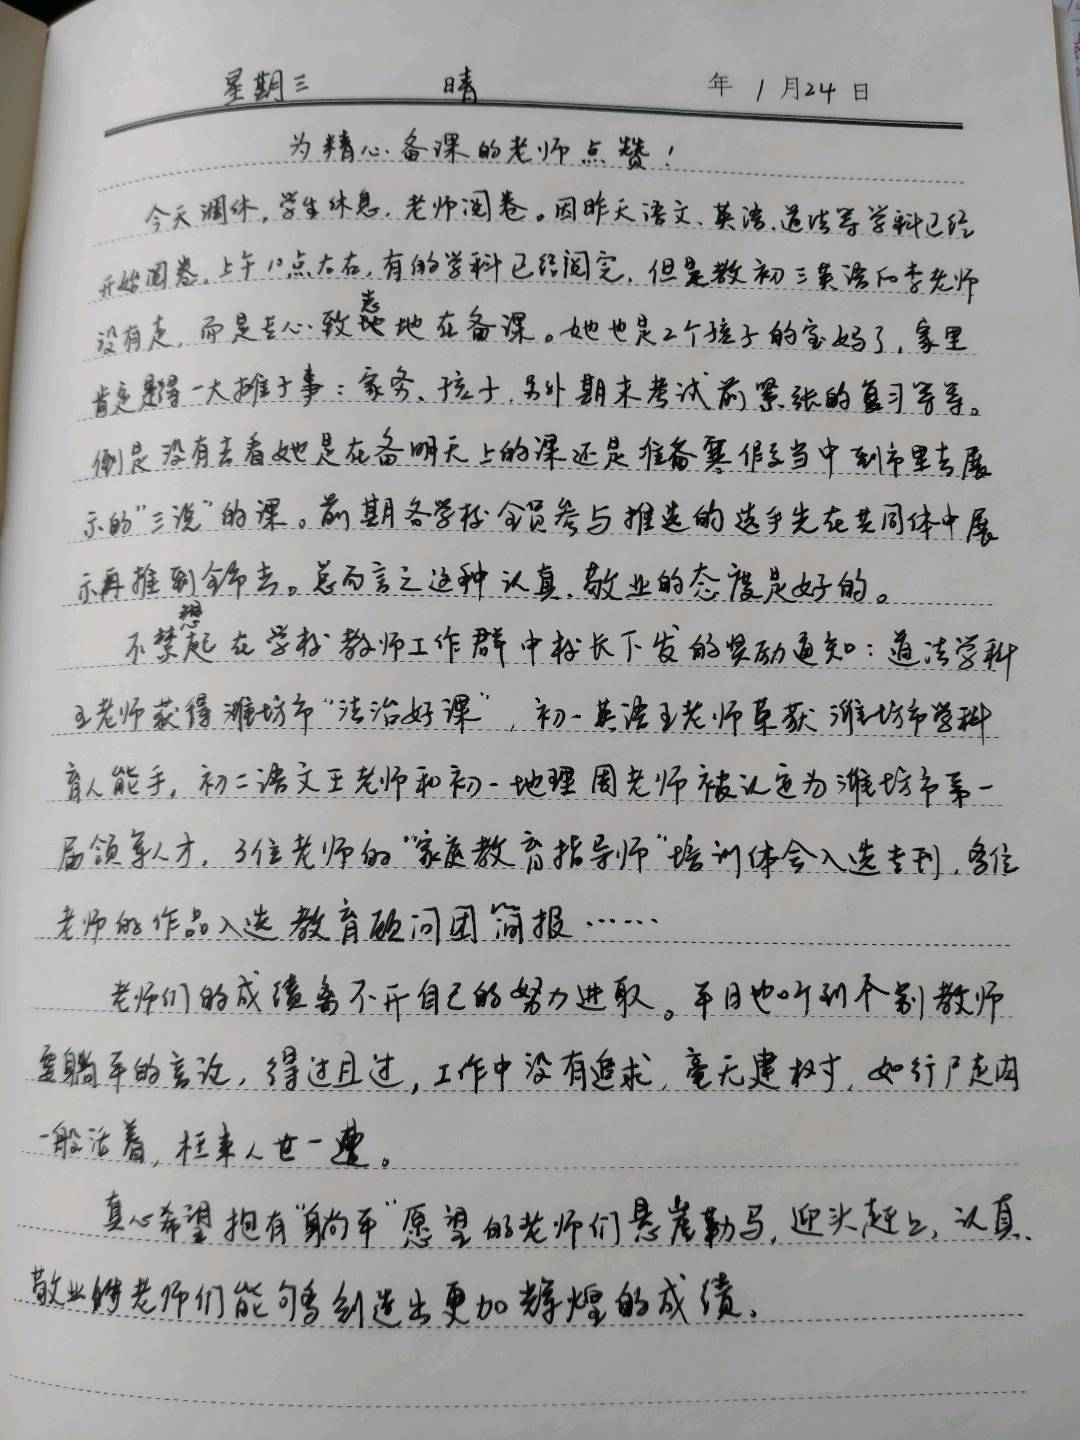 星期三 晴 年 1月24日
为精心备课的老师点赞！
今天调休，学生休息，老师阅卷。因昨天语文、英语、道法等学科已经
开始阅卷，上午10点左右，有的学科已经阅完，但是教初三英语的李老师
没有走，而是专心致志地在备课。她也是2个孩子的宝妈了，家里
肯定是得一大堆子事：家务、孩子，另外期末考试前紧张的复习等等。
倒是没有去看她是在备明天上的课还是准备寒假当中到市里去展
示的“三说”的课。前期各学校全员参与推选的选手先在共同体中展
示再推到全市去。总而言之这种认真、敬业的态度是好的。
不禁想起在学校教师工作群中校长下发的奖励通知：道法学科
王老师获得潍坊市“法治好课”，初一英语王老师荣获潍坊市学科
育人能手，初二语文王老师和初一地理周老师被认定为潍坊市第一
届领军人才，3位老师的“家庭教育指导师”培训体会入选专刊，多位
老师的作品入选教育顾问团简报……
老师们的成绩离不开自己的努力进取。平日也听到个别教师
要躺平的言论，得过且过，工作中没有追求，毫无建树，如行尸走肉
一般活着，枉来人世一遭。
真心希望抱有“躺平”愿望的老师们悬崖勒马，迎头赶上，认真、
敬业的老师们能够创造出更加辉煌的成绩。